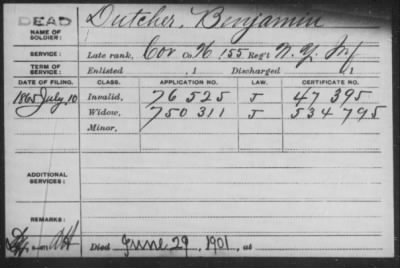 DEAD
NAME OF SOLDIER: Dutcher, Benjamin
SERVICE: Late rank, Cor Co. H, 155 Reg't N.Y. Inf
TERM OF SERVICE: Enlisted , 1 Discharged , 1
DATE OF FILING. CLASS. APPLICATION NO. LAW. CERTIFICATE NO.
1865 July, 10 Invalid, 76 525 J 47 395
Widow, 750 311 J 534 795
Minor,
ADDITIONAL SERVICES:
REMARKS:
Died June 29, 1901, at